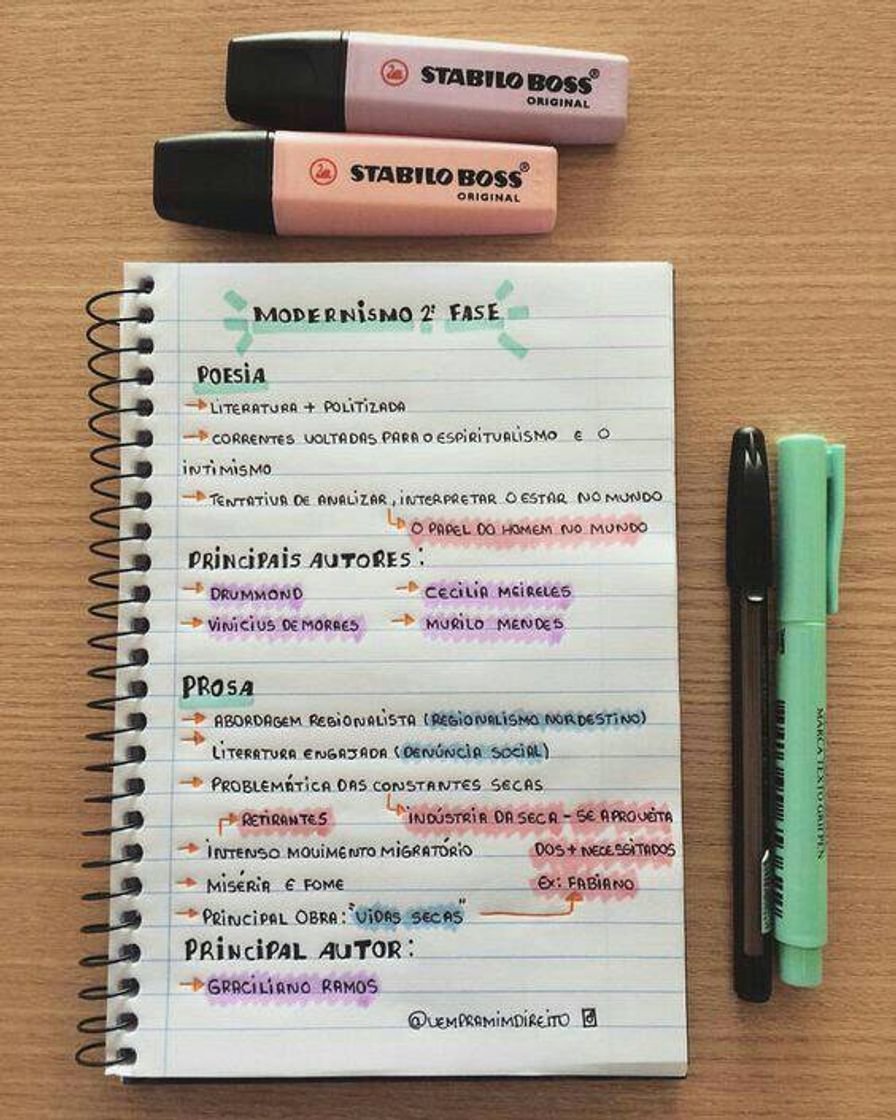 STABILO BOSS®
ORIGINAL
STABILO BOSS®
ORIGINAL
MODERNISMO 2ª FASE
POESIA
→ LITERATURA + POLITIZADA
→ CORRENTES VOLTADAS PARA O ESPIRITUALISMO E O
INTIMISMO
→ TENTATIVA DE ANALIZAR, INTERPRETAR O ESTAR NO MUNDO
O PAPEL DO HOMEM NO MUNDO
PRINCIPAIS AUTORES:
→ DRUMMOND → CECILIA MEIRELES
→ VINICIUS DE MORAES → MURILO MENDES
PROSA
→ ABORDAGEM REGIONALISTA (REGIONALISMO NORDESTINO)
→ LITERATURA ENGAJADA (DENÚNCIA SOCIAL)
→ PROBLEMÁTICA DAS CONSTANTES SECAS
RETIRANTES INDÚSTRIA DA SECA - SE APROVEITA
→ INTENSO MOVIMENTO MIGRATÓRIO DOS + NECESSITADOS
→ MISÉRIA E FOME EX: FABIANO
→ PRINCIPAL OBRA: "VIDAS SECAS"
PRINCIPAL AUTOR:
→ GRACILIANO RAMOS
@VEMPRAMIMDIREITO
MARCA TEXTO GRIFPEN